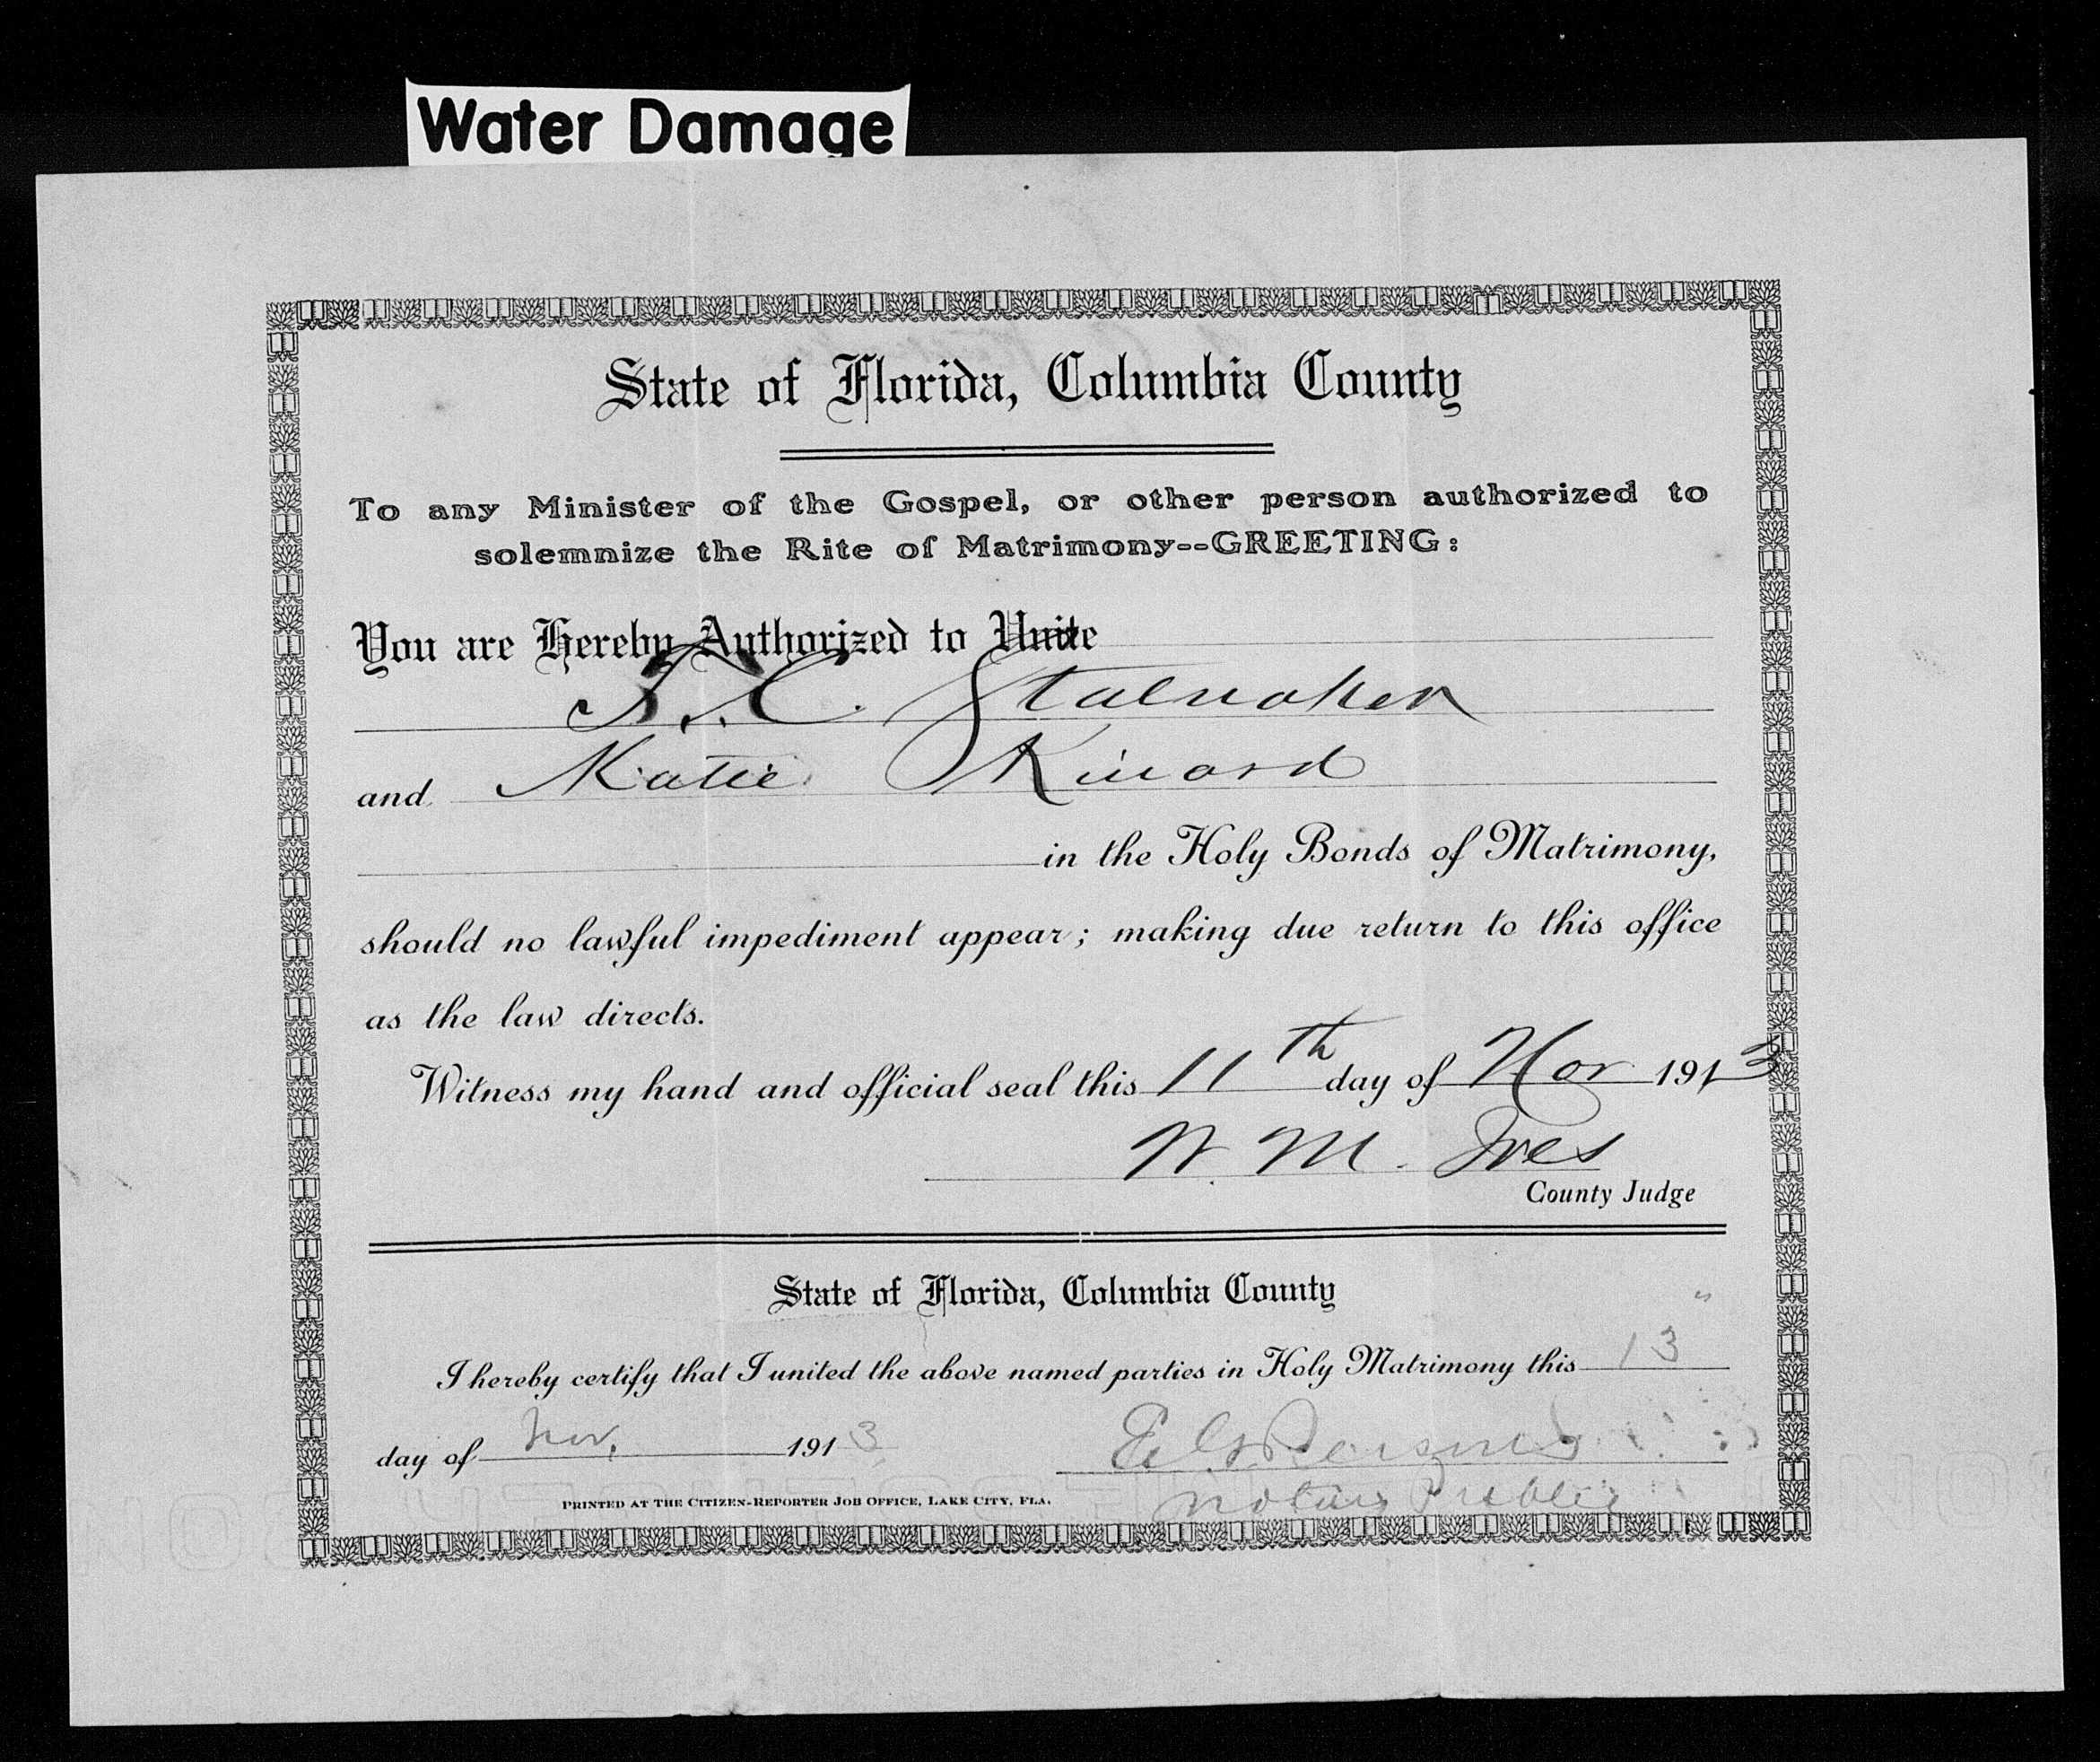 Water Damage
State of Florida, Columbia County
To any Minister of the Gospel, or other person authorized to
solemnize the Rite of Matrimony--GREETING:
You are Hereby Authorized to Unite
T. C. Stalnaker
and Katie Kinard
in the Holy Bonds of Matrimony,
should no lawful impediment appear; making due return to this office
as the law directs.
Witness my hand and official seal this 11th day of Nov 1913
W. M. Ives
County Judge
State of Florida, Columbia County
I hereby certify that I united the above named parties in Holy Matrimony this 13
day of Nov, 1913
Notary Public
PRINTED AT THE CITIZEN-REPORTER JOB OFFICE, LAKE CITY, FLA.